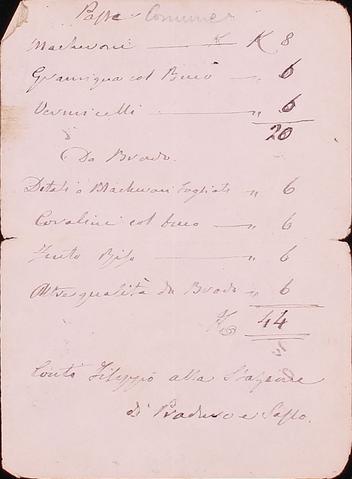 Paste Comuni
Macheroni K 8
Gramigna col Buco " 6
Vermicelli " 6
20
Da Brodo.
Ditali o Macheroni Tagliati " 6
Coraline col buco " 6
Finto Riso " 6
Altre qualità da Brodo " 6
K 44
Conte Filippo alla Stazione
di